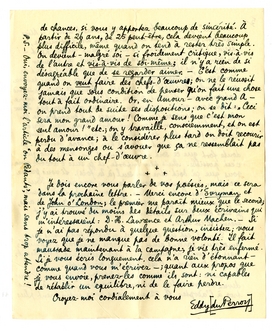 de chances, si vous y apportez beaucoup de sincérité. À
partir de 24 ans, de 25 peut-être, cela devient beaucoup
plus difficile, même quand on tend à rester très simple.
On devient - malgré soi - si forcément critique, vis à vis
de l'autre et vis-à-vis de soi-même; et il n'y a rien de si
désagréable que de se regarder aimer. - C'est comme
quand on veut faire des chefs-d'œuvre: on ne le réussit
jamais que sous condition de penser qu'on fait une chose
tout à fait ordinaire. Or, en amour - avec grand A -
on prend tout de suite ses dispositions; on se dit: Ceci
sera mon grand amour! Comme je sens que c'est mon
seul amour! etc; on y travaille, consciemment, et on est
perdu d'avance; à le considérer plus tard on doit recourir
à des mensonges ou s'avouer que ça ne ressemblait pas
du tout à un chef-d'œuvre.
Je dois encore vous parler de vos poésies, mais ce sera
dans la prochaine lettre. - Merci encore d'
de John o' London; le premier me paraît mieux que le second;
j'y ai trouvé du moins des détails sur deux écrivains qui
m'intéressent: D.-H. Lawrence et Arthur Machen. - Si
je n'ai pas répondu à quelque question, insistez; vous
voyez que je ne manque pas de bonne volonté. Il fait
mauvais maintenant à la campagne, je vis très enfermé.
Si je vous écris longuement, cela n'a rien d'étonnant -
comme quand vous m'écrivez -; quant aux propos que
je vous envoie, prenez-les comme ils sont: ni capables
de rétablir un équilibre, ni de le faire perdre.
Croyez-moi cordialement à vous
Eddy [du Perron]
P.S. - Vous envoyez-moi l'article sans trop attendre!